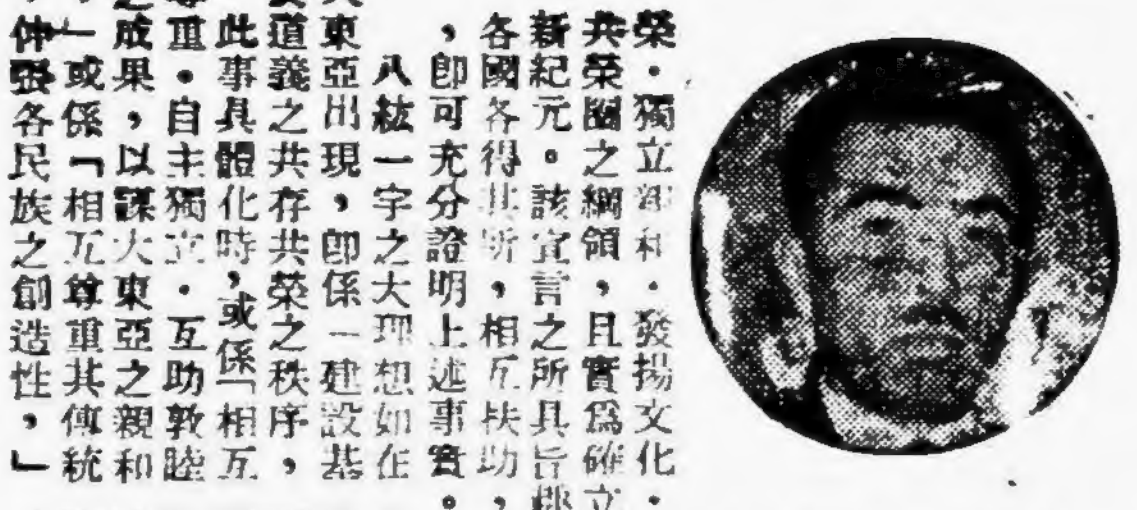 榮・獨立親和・發揚文化・
共榮圈之綱領,且實爲確立
新紀元。該宣言之所具旨
各國各得其所,相互扶助,
,卽可充分證明上述事實。
八紘一宇之大理想如在
東亞出現,卽係一建設基
道義之共存共榮之秩序,
此事具體化時,或係「相互
重・自主獨立・互助敦睦
之成果,以謀大東亞之親和
」或係「相互尊重其傳統
,伸張各民族之創造性,」